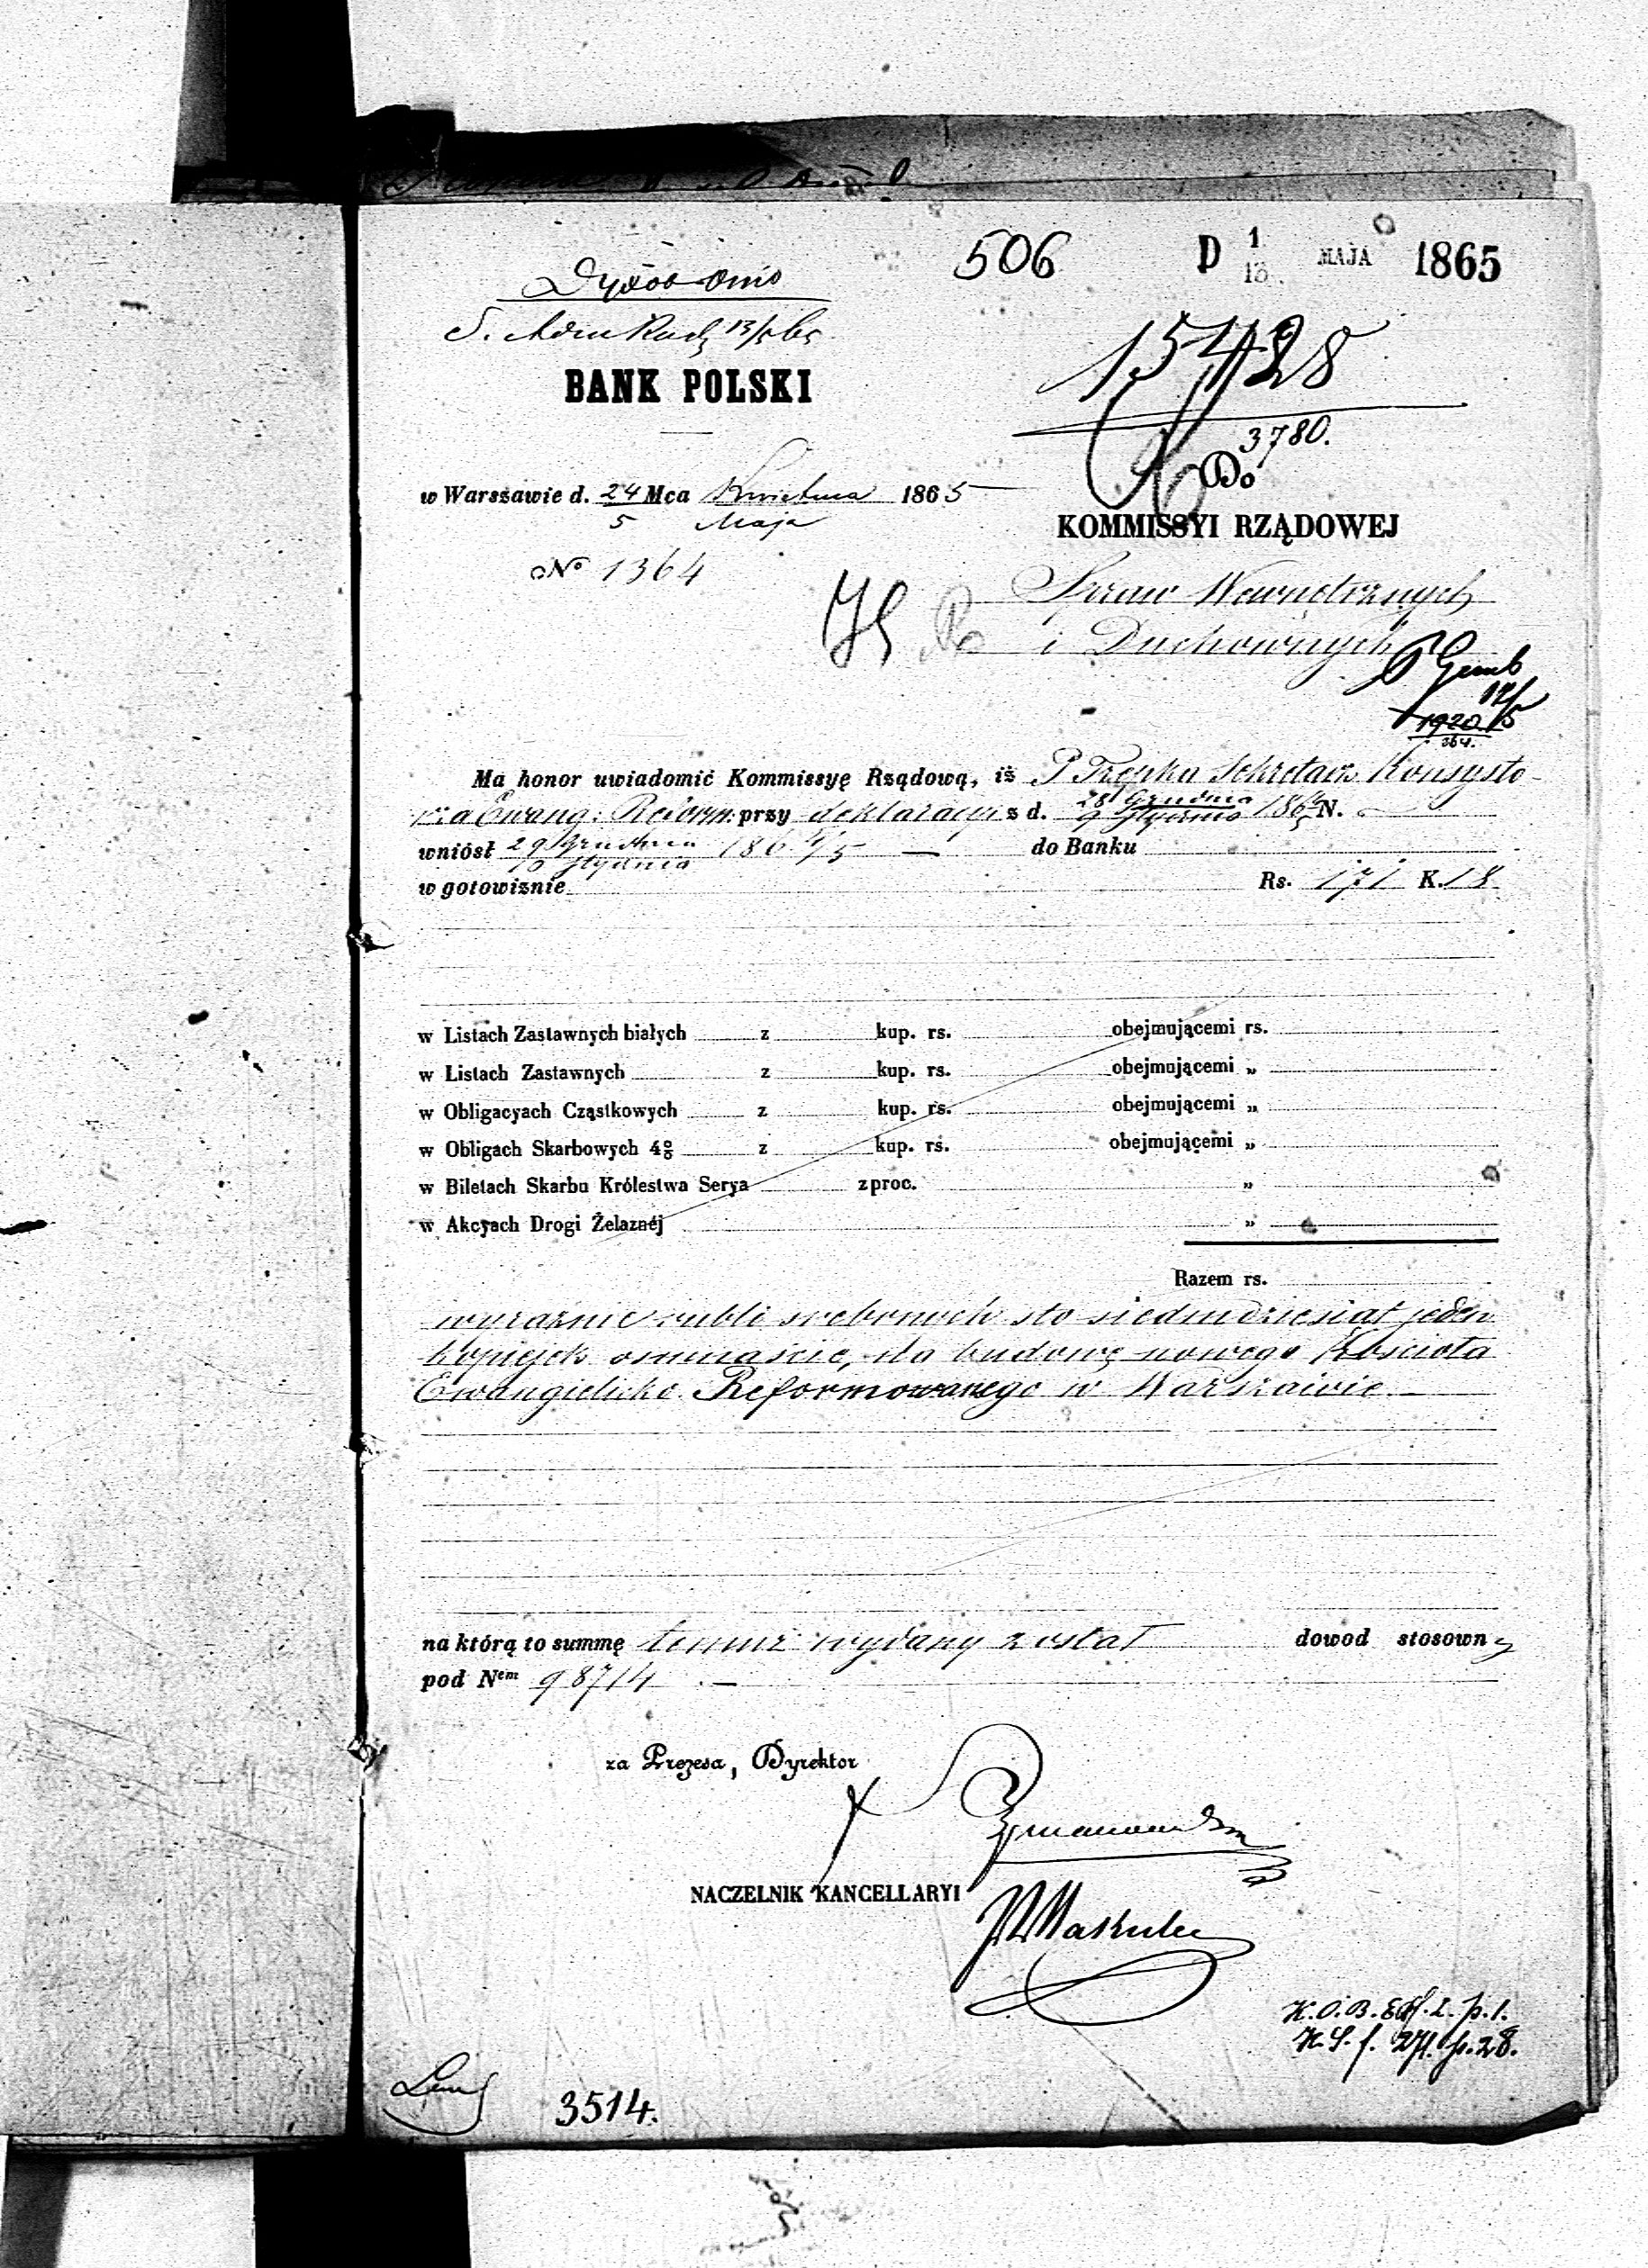 506
D 1/13 MAJA 1865
15428
3780.
BANK POLSKI
w Warszawie d. 24/5 Mca Kwietnia/Maja 1865
No 1364
Do
KOMMISSYI RZĄDOWEJ
Spraw Wewnętrznych
i Duchownych
12/5
1920
Ma honor uwiadomić Kommissyę Rządową, iż P. Sekretarz Konsysto-
rza Ewang: Reform: przy deklaracyi z d. 28 Grudnia/9 Stycznia 1864/5 N.
wniósł 29 Grudnia/10 Stycznia 1864/5 — do Banku
w gotowiznie Rs. 171 K. 18
w Listach Zastawnych białych z kup. rs. obejmującemi rs.
w Listach Zastawnych z kup. rs. obejmującemi „
w Obligacyach Cząstkowych z kup. rs. obejmującemi „
w Obligach Skarbowych 4% z kup. rs. obejmującemi „
w Biletach Skarbu Królestwa Serya z proc. „
w Akcyach Drogi Żelaznéj „
Razem rs.
wyraźnie rubli srebrnych sto siedmdziesiąt jeden
kopiejek ośmnaście, na budowę nowego Kościoła
Ewangielicko Reformowanego w Warszawie. —
na którą to summę temuż wydany został dowod stosowny
pod Nem 98714 . —
za Prezesa, Dyrektor
NACZELNIK KANCELLARYI
3514.